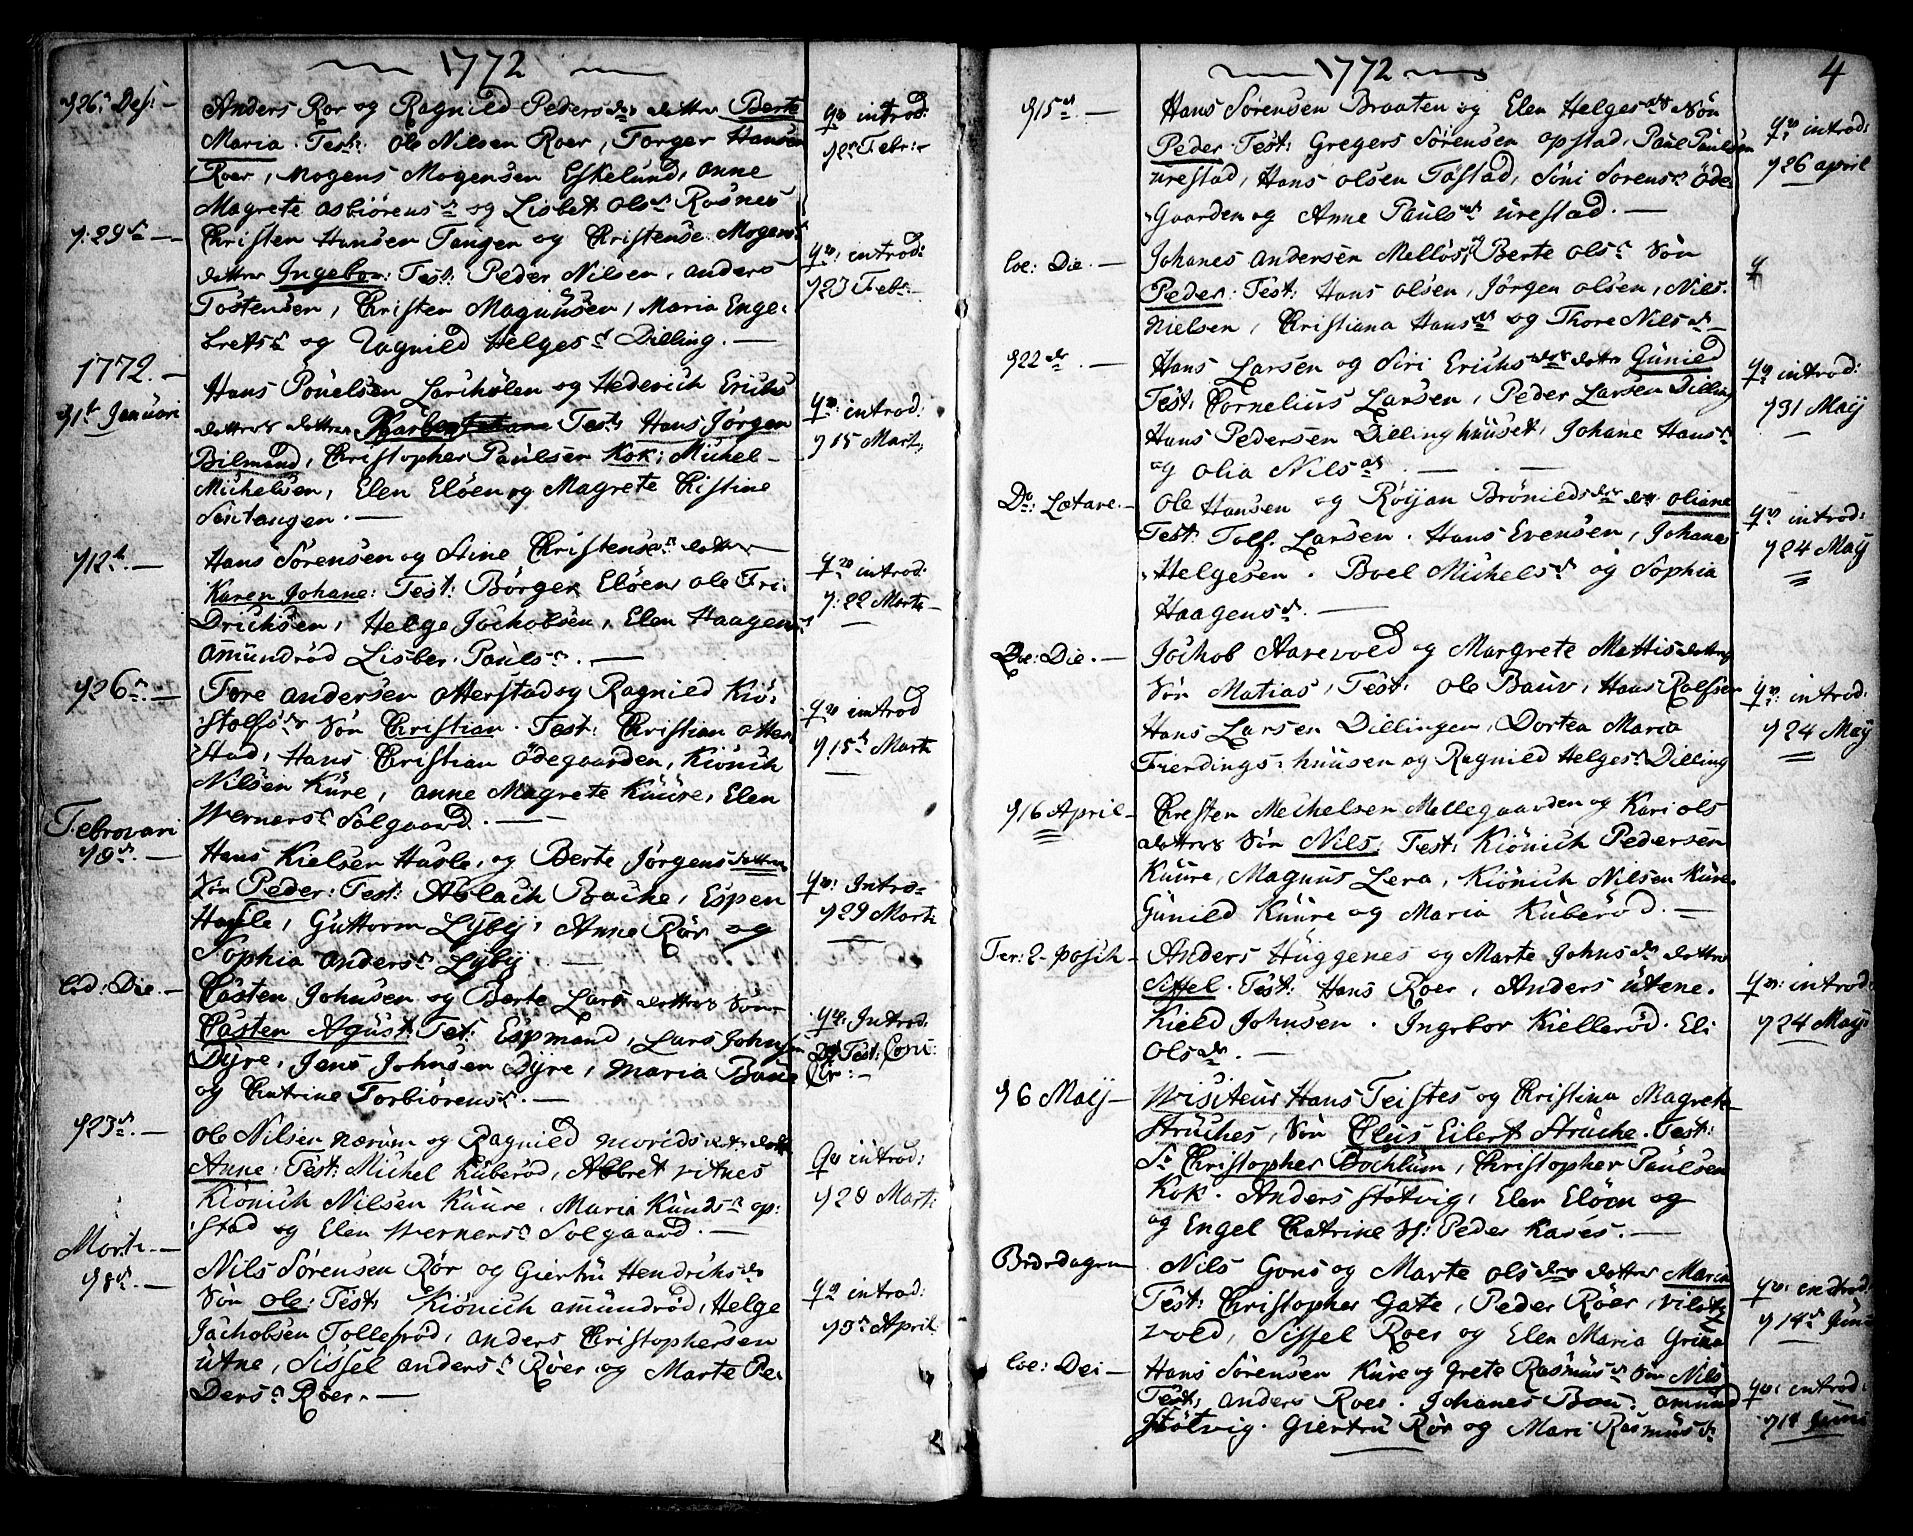 1772
d 26. Des: —
Anders Ror og Ragnild Peders dotter Berte
Maria. Test: Ole Nilsen Roer, Torger Hansen
Roer, Mogens Mogensen Eskelund, Anne
Magrete Asbiörens og Lisbet Ols Rosnes
qv introd:
d 2 Febr:
d: 29 —
Christen Hansen Tangen og Christense Mogens
dotter Ingebor: Test: Peder Nilsen, Anders
Tostensen, Christen Magnusen, Maria Enge-
brets og Ragnild Helges Dilling. —
qv: introd:
d 23 Febr:
1772. —
d 1 Januari
Hans Pouelsen Larkolen og Hedevich Erichs
dotters dotter Test: Hans Jörgen
Bilmand, Christopher Paulsen Kok: Michel
Michelsen, Elen Elöen og Magrete Cistine
Sontangen. —
qv: introd:
d 15 Mart:
d 12 —
Hans Sörensen og Stine Christens dotter
Karen Johane: Test: Börger Elöen, Ole Fri-
drichsen, Helge Jochobsen, Elen Haagens
Amundröd Lisbet Pauls. —
qv introd:
d: 22 Mart: —
d 26 —
Tore Andersen Otterstad og Ragnied Kiö-
stolfs Sön Christian. Test: Christian Otter-
stad, Hans Christian Ödegaarden, Kiönich
Nilsen Kure, Anne Magrete Kuure, Elen
Werners Solgaard. —
qv introd
d 15 Mart:
Febrovari
d 8 —
Hans Kielsen Hasle, og Berte Jörgens dotter
Sön Peder: Test: Ablach Bache, Espen
Hasle, Guttorm Lyby, Anne Rör og
Sophia Anders Lyby —
qv: Intro-
d 29 Mart:
Eod: Die. —
Casten Johnsen og Berte Lars dotters Sön
Casten Agust: Tes: Espmand, Lars Johnsen
Dyre, Jens Johnsen Dyre, Maria Baue
og Catrine Torbiörens. —
qv: Introd:
d 23 —
Ole Nilsen Nærum og Ragnied
Anne: Test: Michel Kuberöd, Abbret Vitnes
Kiönich Nilsen Kuure, Maria Knuds Op-
stad og Elen Werners Solgaard. —
qv introd:
d 28 Mart:
Marti. —
d 8 —
Nils Sörensen Rör og Giertru Hendrichs
Sön Ole: Test: Kiönich Amundröd, Helge
Jachobsen Tollefröd, Anders Christophersen
Utne, Sissel Anders Röer og Marte Pe-
ders Röer. —
qv introd:
d 5 April
1772
4
d 15 —
Hans Sörensen Braaten og Elen Helges Sön
Peder. Test: Gregers Sörensen Opstad, Paul Paulsen
Urestad, Hans Olsen Tostad, Soni Sorens Öde-
Gaarden og Anne Pauls Urestad. —
qv introd:
d 26 april
Eoe: Die. —
Johanes Andersen Mellös Berte Ols Sön
Peder: Test: Hans Olsen, Jörgen Olsen, Nils
Nielsen, Christiana Hans og Thore Nils
q
d 22 —
Hans Larsen og Siri Erichs dotter Gunied
Test: Cornelius Larsen, Peder Larsen Dilling
Hans Pedersen Dillinghuuset, Johane Hans
og Olia Nils —
qv introd:
d 31 Maij
Do: Lætare. —
Ole Hansen og Röijan Brönilds dott: Oliane
Test: Tolf. Larsen. Hans Evensen, Johanes
Helgesen. Boel Michels og Sophia
Haagens. —
qv introd:
d 24 Maij
Doe: Die. —
Jochob Aarevold og Margrete Mattis dotter
Sön Matias, Test: Ole Bauv, Hans Rolfsen
Hans Larsen Dillingen, Dortea Maria
Fierdings-huusen og Ragnied Helges Dilling
qv introd:
d 24 Maij
d 16 April —
Christen Mechelsen Mellegaarden og Kari Ols
dotters Sön Nils: Test: Kiönich Pedersen
Kuure, Magnus Lera, Kiönich Nilsen Kure.
Gunild Kuure og Maria Kuberöd. —
Fer: 2. pasch —
Anders Huggenes og Marte Johns dotter
Siffel. Test: Hans Roer, Anders Utene.
Kield Johnsen. Ingebor Kielleröd. Eli
Ols. —
qv: introd:
d 24 Maij:
d 6 Maij —
Wisiteur Hans Teistes og Christina Magrete
Struches, Sön Claus Eilert Struche. Test:
Sr Christopher Bochlum, Christopher Paulsen
Kok. Anders Stötvig, Elen Elöen og
og Engel Catrine Sl: Peder Kases. —
Bededagen
Nils Gons og Marte Ols dotter Maria
Test: Christopher Gate, Peder Röer,
vold, Siffel Roer og Elen Maria Grina
qv: introd:
d 14 Juni
Eoe: Dei —
Hans Sörensen Kure og Grete Rasmus Sön Nils
Test: Anders Roer. Johanes Bau: Amund
Stötvig. Giertru Rör og Mari Rasmus
qv: introd:
d 14 Juni